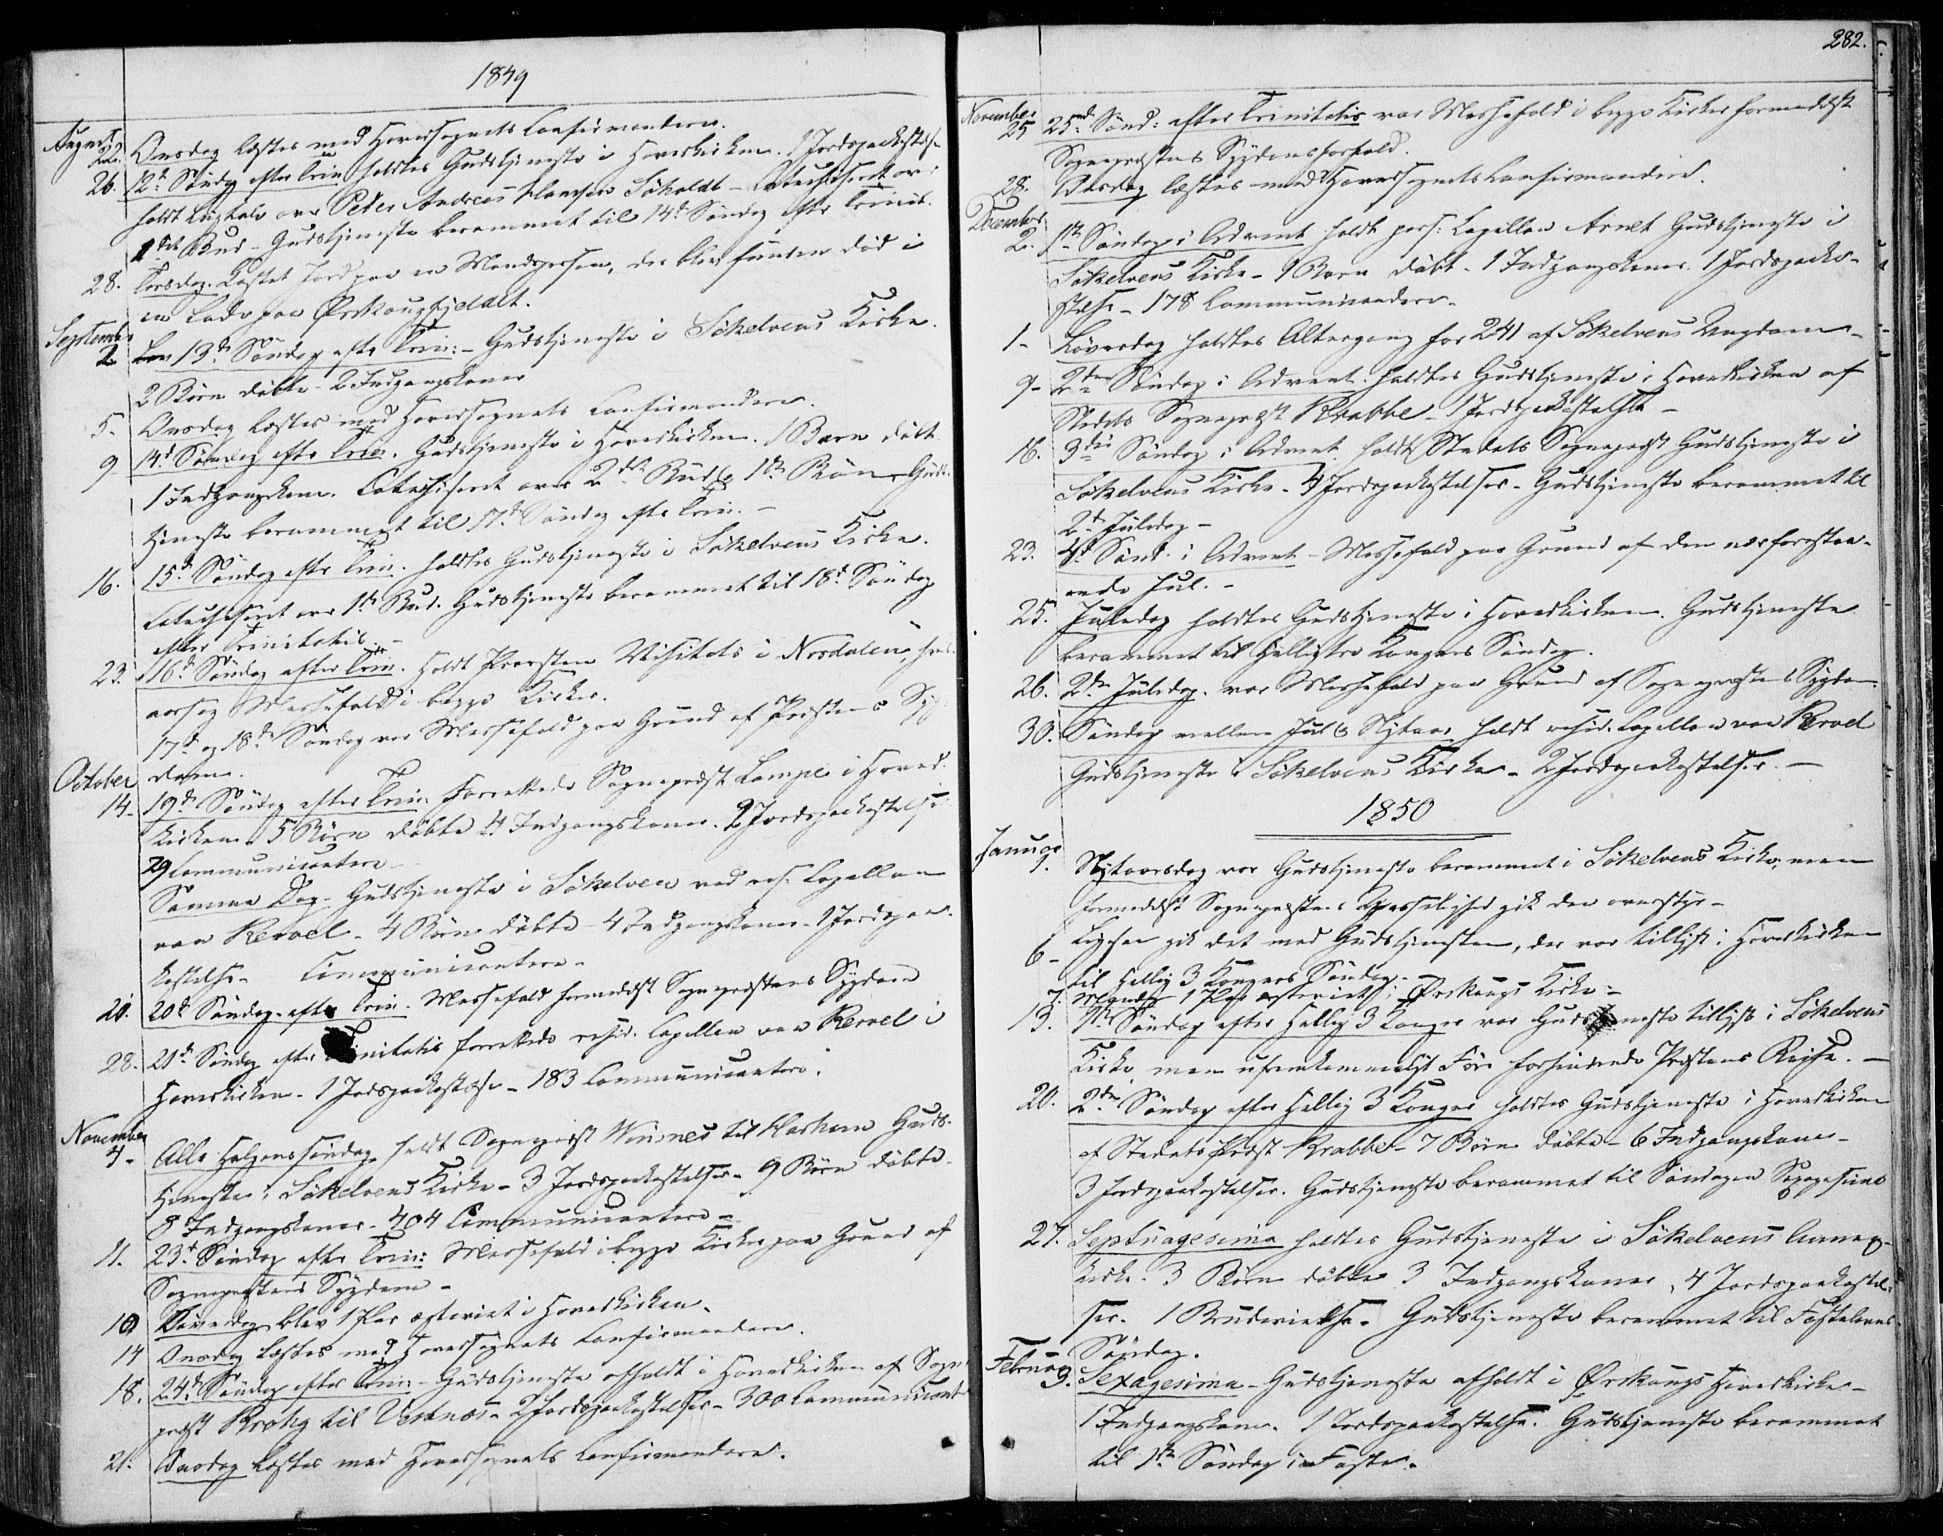 1849
August
22. Onsdag læstes med Hovedsognets Confirmander.
26. 12te Søndag efter Trin. holdtes Gudstjeneste i Hovedkirken. 1 Jordspaakastelse
holdt Liigtale over Peter Andreas Søholdt - Catechiseret over
1ste Bud - Gudstjeneste berammet til 14de Søndag efter Trinit.
28. Tirsdag. Kastet Jord paa en Mandsperson, der blev funden død i
en Lade paa Ørskougfjeldet.
September
2. 13de Søndag efter Trin: - Gudstjeneste i Søkelvens Kirke.
2 Børn døbte - 2 Indgangskoner
5. Onsdag læstes med Hovedsognets Confirmander.
9 14de Søndag efter Trin. Gudstjeneste i Hovedkirken. 1 Barn døbt
1 Indgangskone. Catechiseret over 2det Bud & 1ste Bøn - Guds-
tjeneste berammet til 17de Søndag efter Trin. -
16. 15de Søndag efter Trin. holdtes Gudstjeneste i Søkelvens Kirke.
Catechiseret over 1ste Bud. Gudstjeneste berammet til 18de Søndag
efter Trinitatis. -
23. 16de Søndag efter Trin. holdt Provsten Visitats i Nordalen,
aarsag Messefald i begge Kirker.
17de og 18de Søndag var Messefald paa Grund af Præstens Syg-
dom.
October
14. 19de Søndag efter Trin. forrettede Sognepræst Lampe i Hoved-
kirken. 5 Børn døbte 4 Indgangskoner. 2 Jordspaakastelser
29 Communicantere -
Samme Dag. Gudstjeneste i Søkelven ved res. Capellan
von Kervel - 4 Børn døbte - 4 Indgangskoner - 1 Jordspaa-
kastelse - Communicantere -
20de Søndag efter Trin. Messefald formedelst Sognepræstens Sygdom
28. 21de Søndag efter Trinitatis forrettede resid. Capellan von Kervel i
Hovedkirken - 1 Jordspaakastelse - 183 Communicantere.
November
4- Alle Helgenssøndag holdt Sognepræst til Harham Guds-
tjeneste i Søkelvens Kirke - 3 Jordspaakastelser - 9 Børn døbte -
8 Indgangskoner - 404 Communicantere -
11. 23de Søndag efter Trin: Messefald i begge Kirker paa Grund af
Sognepræstens Sygdom -
10 Løverdag blev 1 Par ægteviet i Hovedkirken.
14 Onsdag læstes med Hovedsognets Confirmander.
18. 24de Søndag efter Trin. - Gudstjeneste afholdt i Hovedkirken af Sogne-
præst til Vestnæs - 2 Jordspaakastelser - 300 Communicant
21. Onsdag læstes med Hovedsognets Confirmander.
282.
November
25 25de Sønd: efter Trinitatis var Messefald i begge Kirker formedelst
Sognepræstens Sygdomsforfald.
28. Onsdag læstes med Hovedsognets Confirmander.
December
2. 1ste Søndag i Advent holdt pers: Capellan Arnet Gudstjeneste i
Søkelvens Kirke - 1 Barn døbt - 1 Indgangskone. 1 Jordspaaka-
stelse - 178 Communicantere.
1- Løverdag holdtes Altergang for 241 af Søkelvens Ungdom -
9- 2den Søndag i Advent. holdtes Gudstjeneste i Hovedkirken af
Stedets Sognepræst Krabbe - 1 Jordspaakastelse -
16. 3die Søndag i Advent holdt Stedets Sognepræst Gudstjeneste i
Søkelvens Kirke - 4 Jordspaakastelser - Gudstjeneste berammet til
2den Juledag -
23. 4de Sønd. i Advent - Messefald paa Grund af den nærforestaa-
ende Jul. -
25. Juledag holdtes Gudstjeneste i Hovedkirken. Gudstjeneste
berammet til Helligtre Kongers Søndag.
26. 2den Juledag. var Messefald paa Grund af Sognepræstens Sygdom.
30. Søndag mellem Jul & Nytaar holdt resid. Capellan von Kervel
Gudstjeneste i Søkelvens Kirke - 2 Jordspaakastelser. -
1850
Januar
1. Nytaarsdag var Gudstjeneste berammet i Søkelvens Kirke, men
formedelst Sognepræstens Upasselighed gik den overstyr -
6- Ligesaa gik det med Gudstjenesten, der var tillyst i Hovedkirken
til Hellig 3 Kongers Søndag. -
7. Mandag 1 Par ægteviet i Ørskougs Kirke -
13. 1ste Søndag efter Hellig 3 Konger var Gudstjeneste tillyst i Søkelvens
Kirke, men ufremkommeligt Føre forhindrede Præstens Rejse. -
20. 2den Søndag efter Hellig 3 Konger holdtes Gudstjeneste i Hovedkirken
af Stedets Præst Krabbe - 7 Børn døbte - 6 Indgangskoner -
3 Jordspaakastelser. Gudstjeneste berammet til Søndagen
27. Septuagesima holdtes Gudstjeneste i Søkelvens Annex-
kirke. 3 Børn døbte 3 Indgangskoner, 4 Jordspaakastel-
ser. 1 Brudevielse. Gudstjeneste berammet til Fastelavns-
Søndag.
Februar
3. Sexagesima - Gudstjeneste afholdt i Ørskougs Hovedkirke -
1 Indgangskone. 1 Jordspaakastelse. Gudstjeneste berammet
til 1ste Søndag i Faste.